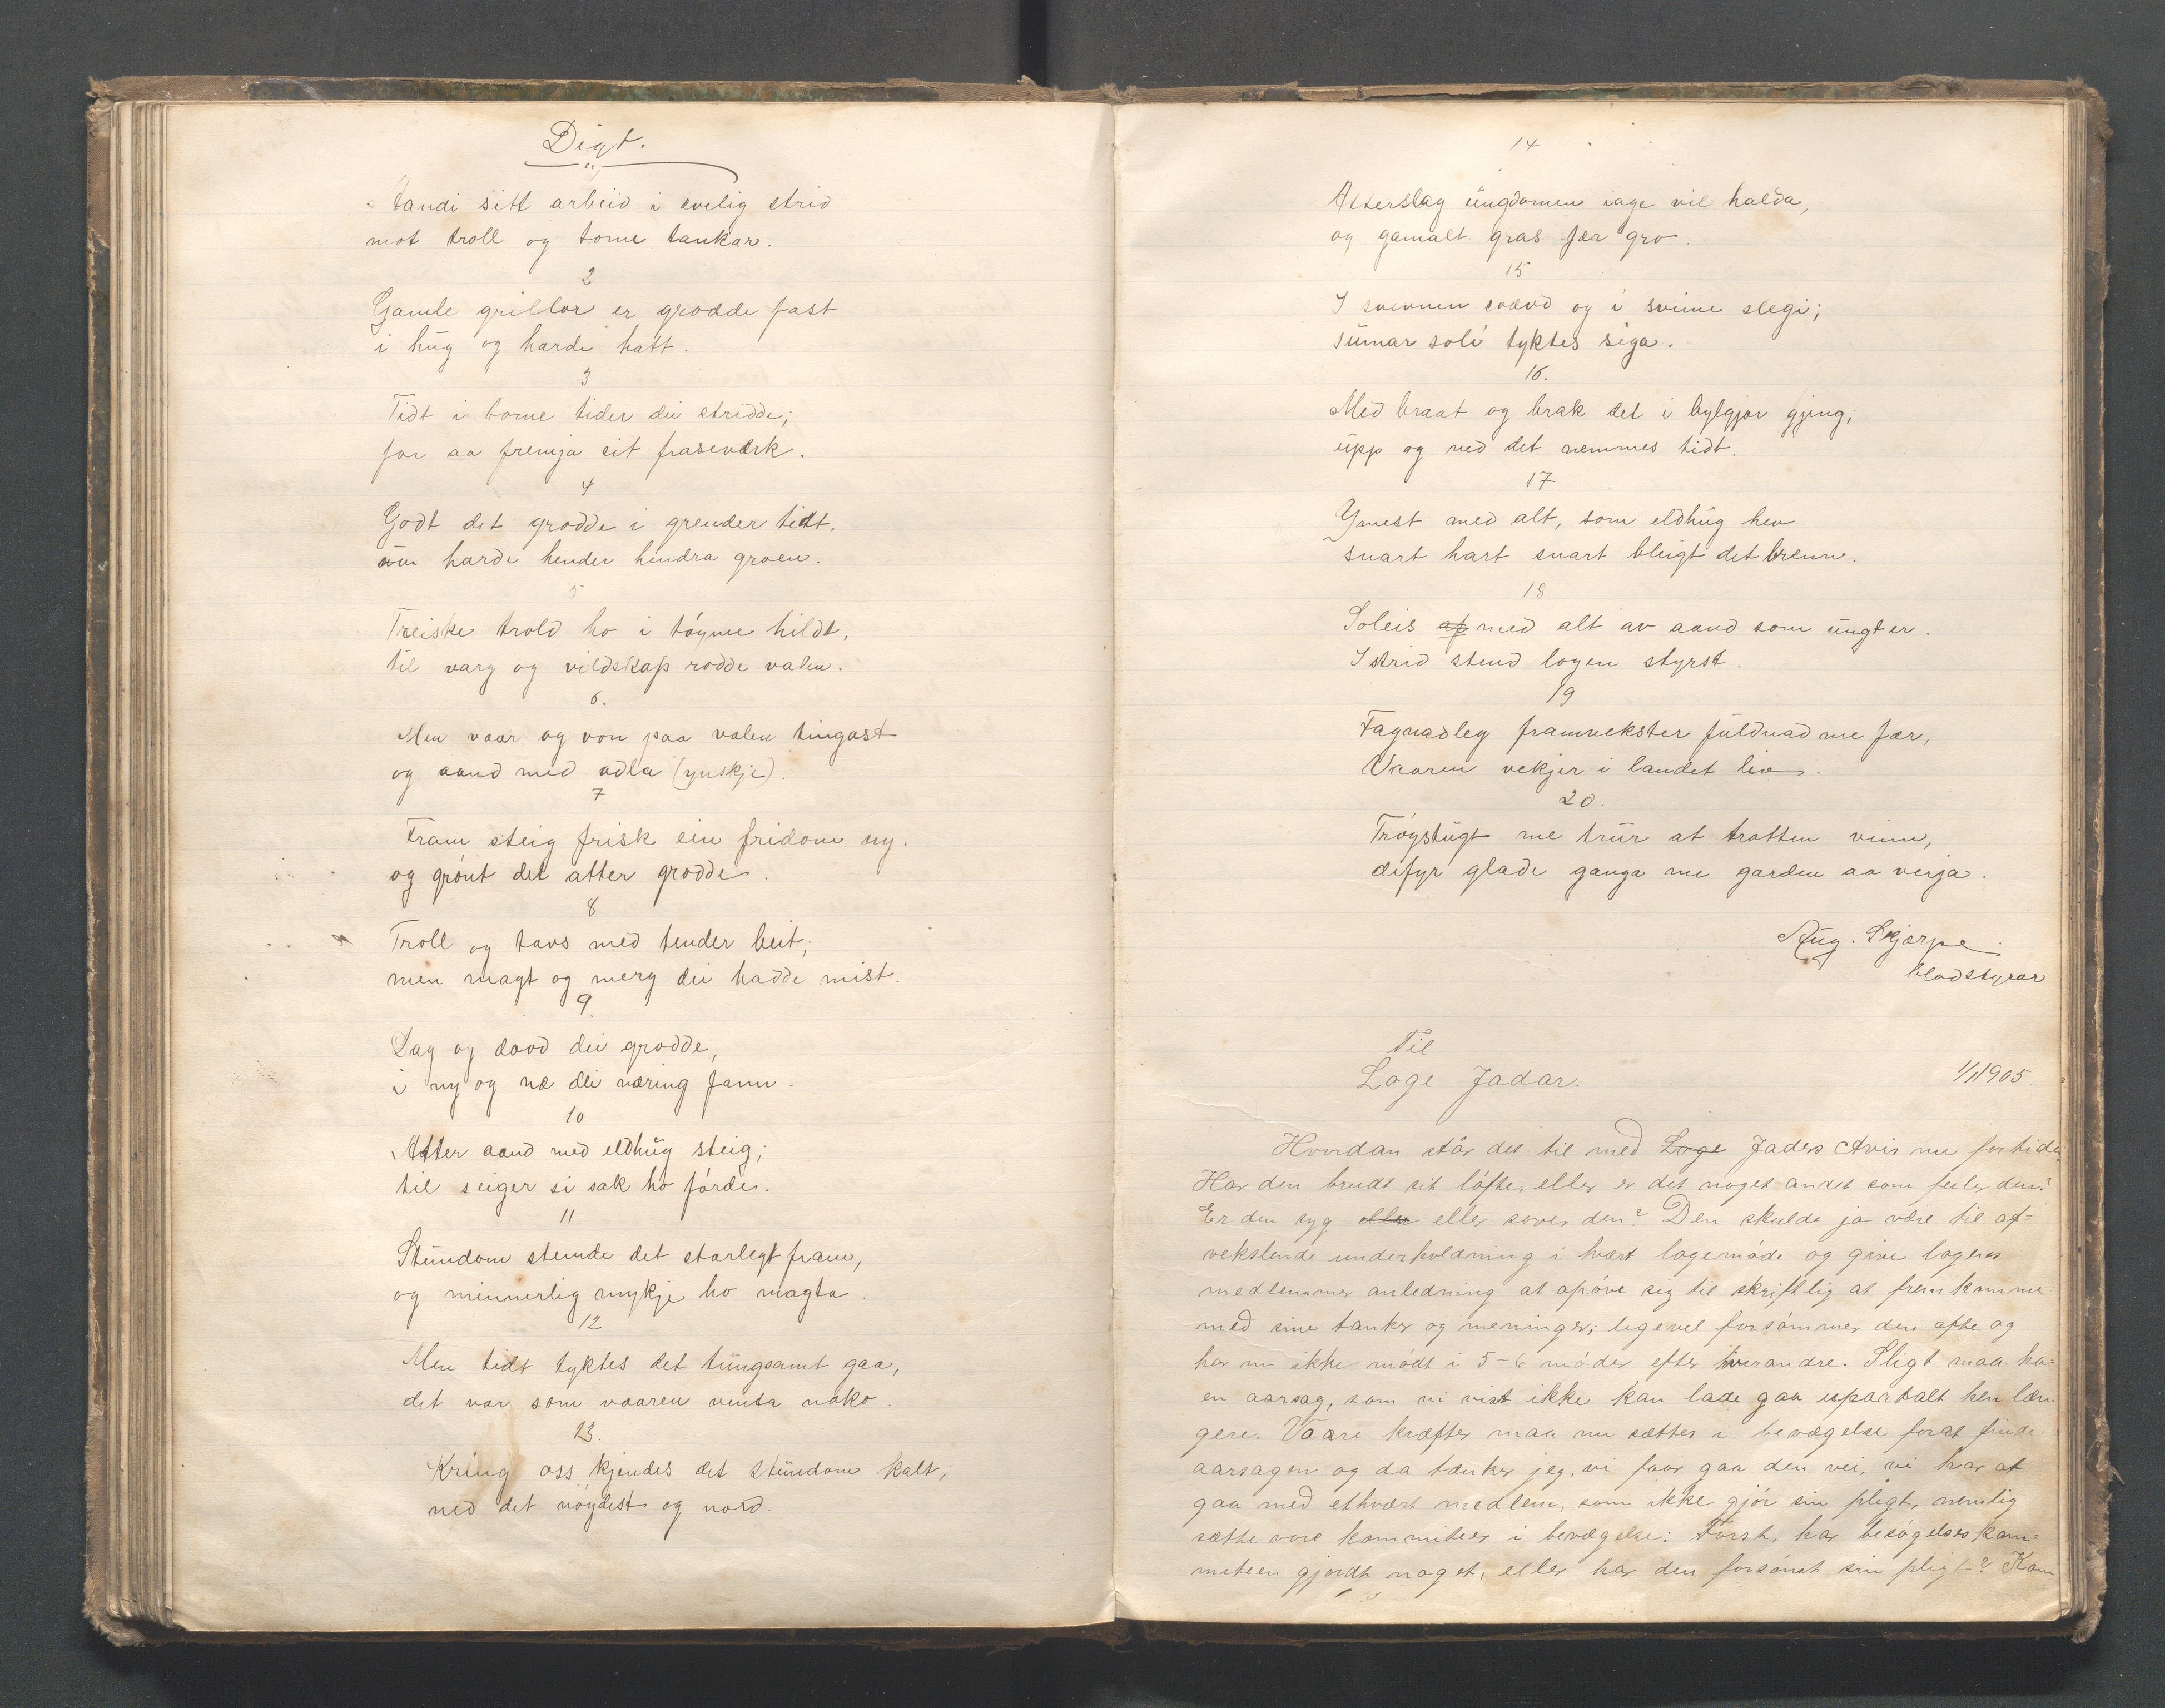 Digt.
Aandi sitt arbeid i evelig strid
mot troll og tome tankar.
2
Gamle grillor er grodde fast
i hug og harde hatt.
3
Tidt i tome tider dei stridde;
for aa fremja sit fraseværk.
4
Godt det grodde i grender tidt.
um harde hender hindra groen.
5
Treiske trold ho i tóyme hildt,
til varg og vildskap rodde valen.
6.
Men vaar og von paa valen tingast
og aand med adla (ynskje).
7
Fram steig frisk ein fridom ny.
og grónt det atter grodde.
8
Troll og tavs med tender beit;
men magt og merg dei hadde mist.
9.
Dag og daod dei grodde,
i ny og næ dei næring fann.
10
Atter aand med eldhug steig;
til seiger si sak ho fórde.
11
Stundom stemde det starlegt fram,
og minnerlig mykje ho magta.
12
Men tidt tyktes det tungsamt gaa,
det var som vaaren venta noko.
13.
Kring oss kjendes det stundom kalt;
ned det nóydest og nord.
14
Atterslag ungdomen iage vil halda,
og gamalt gras fær gro.
15
I svevnen svævd og i svime slegi;
sumar soli tyktes siga.
16.
Med braat og brak det i bylgjor gjeng;
upp og ned det nemmes tidt.
17
Ymest med alt, som eldhug hev
snart hart snart bleigt det brenn.
18
Soleis af med alt av aand som ungt er.
I strid stend logen styrst.
19
Fagnadleg framvekster fuldnad me fær,
Vaaren vekjer i landet liv.
20.
Tróystugt me trur at tratten vinn,
difyr glade ganga me garden aa verja.
Aug. Skjærpe
bladstyrar
Til
Loge Jadar. 1/1 1905.
Hvordan står det til med Loge Jaders Avis nu for tide
Har den brudt sit lófte, eller er det noget andet som feiler den?
Er den syg eller eller sover den? Den skulde jo være til af=
vekslende underholdning i hvært logemóde og give logens
medlemmer anledning at opóve sig til skriftlig at fremkomme
med sine tanker og meninger; ligevel forsómmer den ofte og
har nu ikke módt i 5-6 móder efter hverandre. Sligt maa ha=
en aarsag, som vi vist ikke kan lade gaa upaatalt hen læn
gere. Vaare kræfter maa nu sættes i bevægelse forat finde
aarsagen og da tænker jeg, vi faar gaa den vei, vi har at
gaa med ethvært medlem, som ikke gjór sin pligt, nemlig
sætte vore kommiteer i bevægelse: Fórst, har besógelseskom=
miteen gjordt noget, eller har den forsómt sin pligt? Kom